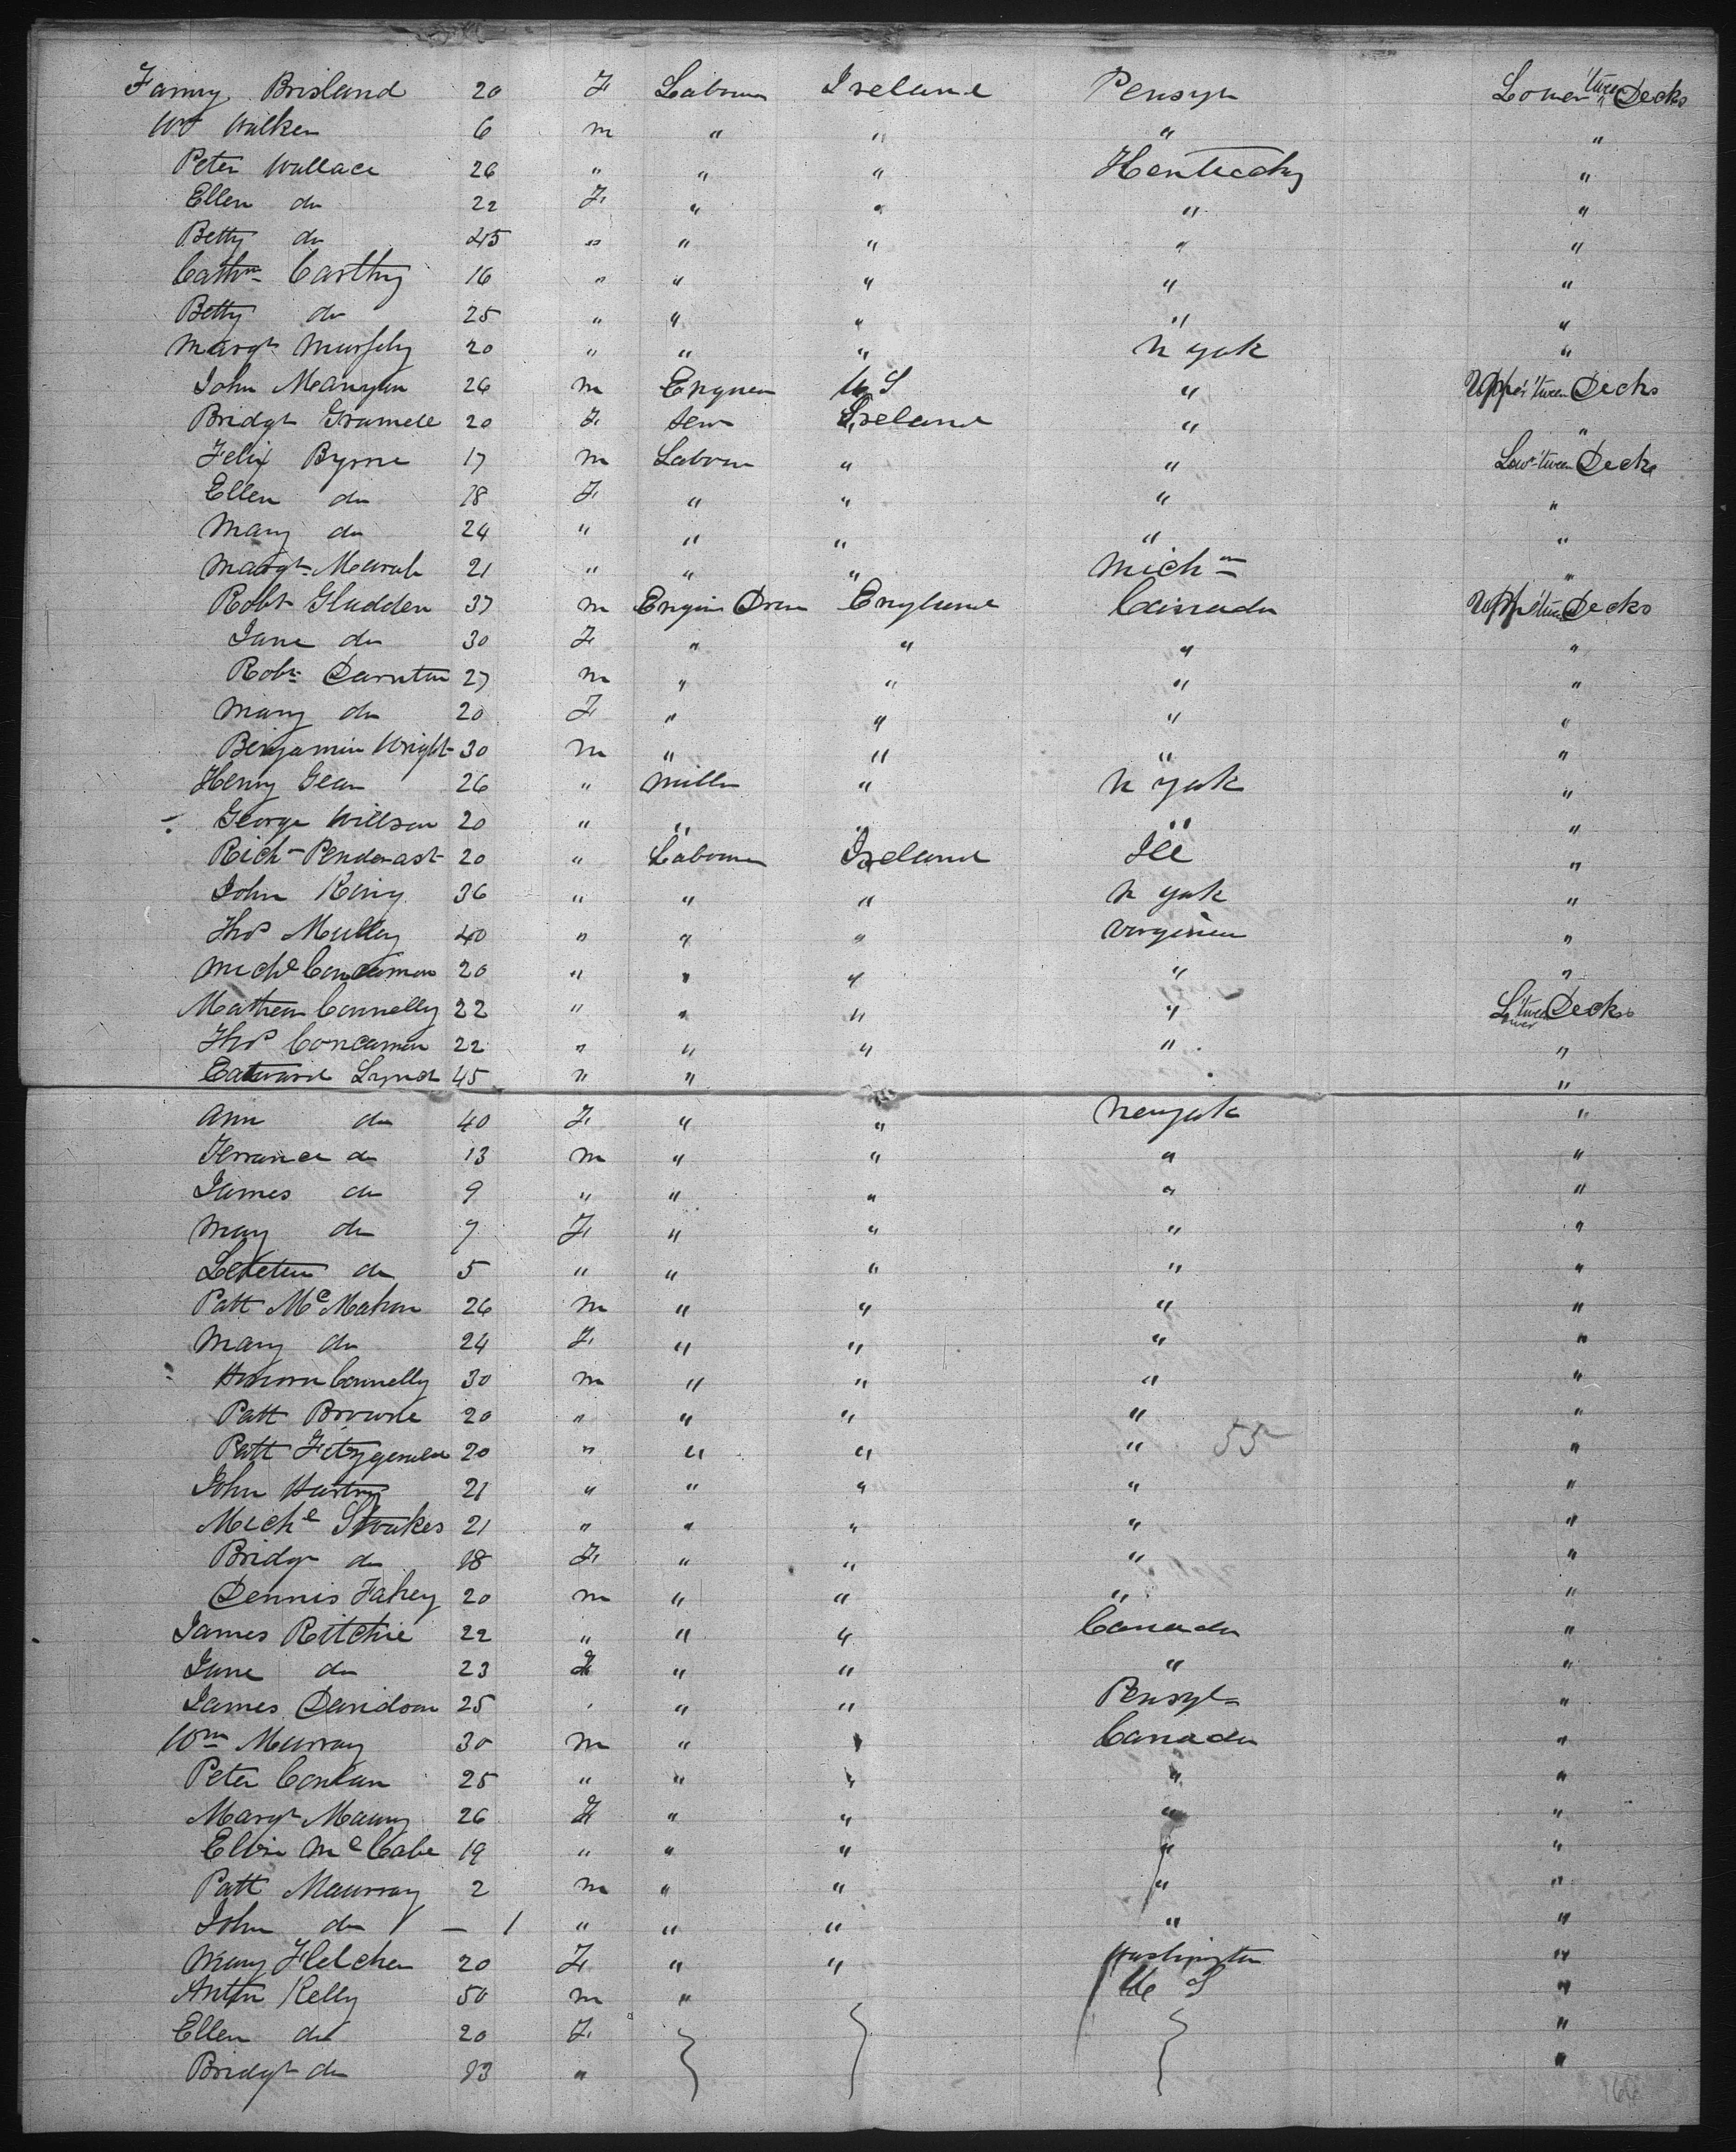 Fanny Brisland 20 F Labour Ireland Pensyn Lower 'tween Decks
Wm Walker 6 m " " " "
Peter Wallace 26 " " " Kentucky "
Ellen do 22 F " " " "
Betty do 45 " " " " "
Cathn Carthy 16 " " " " "
Betty do 25 " " " " "
Margt Murphy 20 " " " N York "
John Mangan 26 m Engineer U S " Upper 'tween Decks
Bridgt 20 F Ireland " "
Felix Byrne 17 m Labour " " Low 'tween Decks
Ellen do 18 F " " " "
Mary do 24 " " " " "
Margt 21 " " " Mich an "
Robt Gludden 37 m Engin England Canada Upp 'tween Decks
Jane do 30 F " " " "
Robt Darnton 27 m " " " "
Mary do 20 F " " " "
Benjamin Wright 30 m " " " "
Henry Gean 26 " Miller " N York "
George Willson 20 " " " " "
Rich Penderast 20 " Labour Ireland Ill "
John King 36 " " " N York "
Thos Mulley 40 " " " Virginia "
Michl Concannon 20 " " " " "
Mathew Connelly 22 " " " " Lower 'tween Decks
Thos Concannon 22 " " " " "
Edward Lynch 45 " " "
Ann do 40 F " " New York "
Terrance do 13 m " " " "
James do 9 " " " " "
Mary do 7 F " " " "
do 5 " " " " "
Patt McMahon 26 m " " " "
Mary do 24 F " " " "
Connelly 30 m " " " "
Patt Browne 20 " " " " "
Patt Fitzgerald 20 " " " " 55 "
John Hartry 21 " " " " "
Michl Stoakes 21 " " " " "
Bridgt do 18 F " " " "
Dennis Fahey 20 m " " " "
James Ritchie 22 " " " Canada "
Jane do 23 F " " " "
James Davidson 25 " " Pensyl "
Wm Murray 30 m " " Canada "
Peter Conlan 25 " " " " "
Margt Manny 26 F " " " "
McCabe 19 " " " " "
Patt Mawrray 2 m " " " "
John do — 1 " " " " "
Mary Fletcher 20 F " " Washington "
Antn Kelly 50 m " U S "
Ellen do 20 F "
Bridgt do 13 " "
166